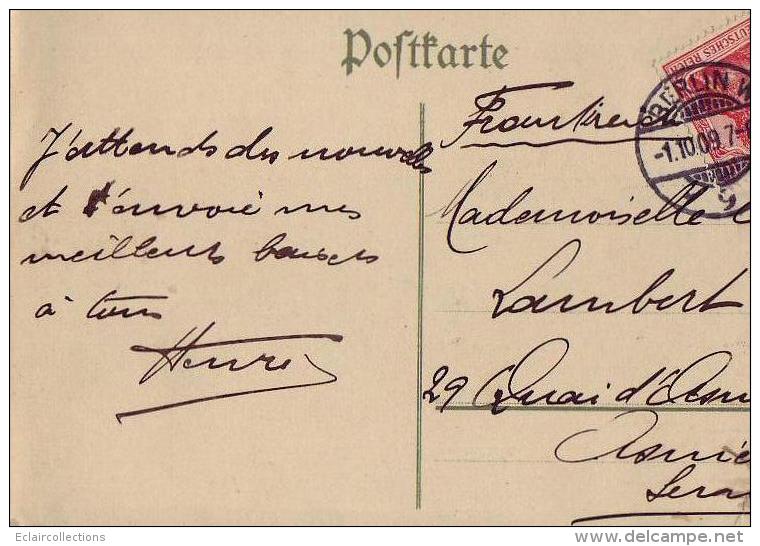 Postkarte
DEUTSCHES REICH
BERLIN W.
-1.10.09.7-
9
J'attends des nouvelles
et t'envoie mes
meilleurs baisers
à tous
Henri
Frankreich
Mademoiselle
Lambert
29 Quai d'Asni
Asniè
Eclaircollections
delcampe.net